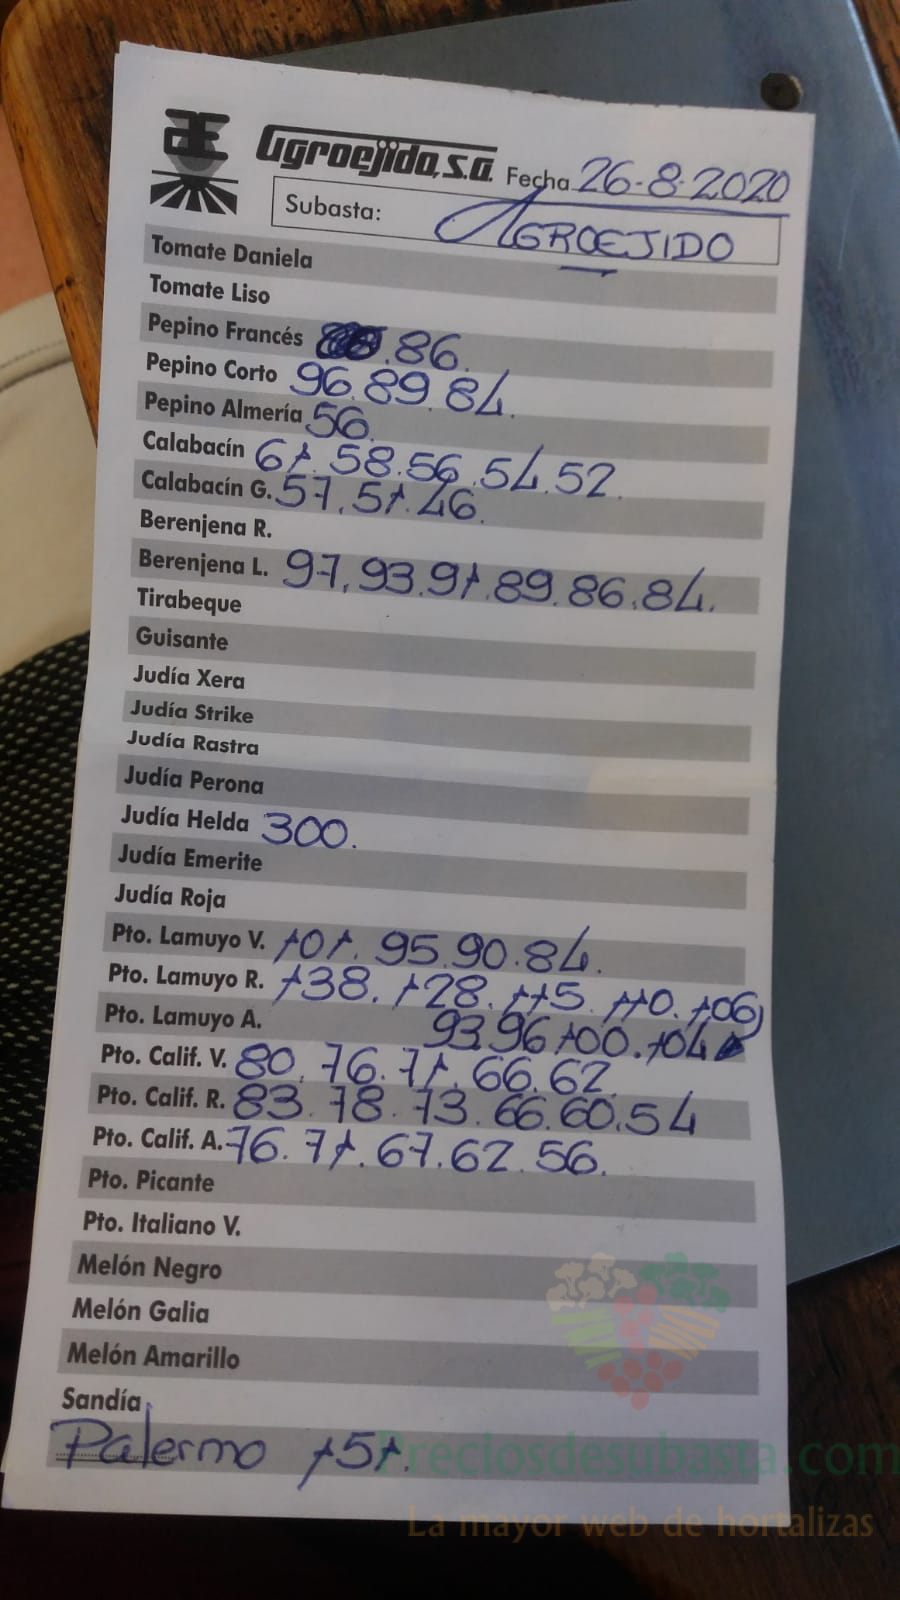 AE Agroejido, S.A. Fecha 26-8-2020
Subasta: AGROEJIDO
Tomate Daniela
Tomate Liso
Pepino Francés .86.
Pepino Corto 96.89.84.
Pepino Almería 56.
Calabacín 61.58.56.54.52.
Calabacín G. 57.51.46.
Berenjena R.
Berenjena L. 97.93.91.89.86.84.
Tirabeque
Guisante
Judía Xera
Judía Strike
Judía Rastra
Judía Perona
Judía Helda 300.
Judía Emerite
Judía Roja
Pto. Lamuyo V. 101.95.90.84.
Pto. Lamuyo R. 138.128.115.110.106
Pto. Lamuyo A. 93.96.100.104
Pto. Calif. V. 80.76.71.66.62.
Pto. Calif. R. 83.78.73.66.60.54
Pto. Calif. A. 76.71.67.62.56.
Pto. Picante
Pto. Italiano V.
Melón Negro
Melón Galia
Melón Amarillo
Sandía
Palermo 151.
Preciosdesubasta.com
La mayor web de hortalizas